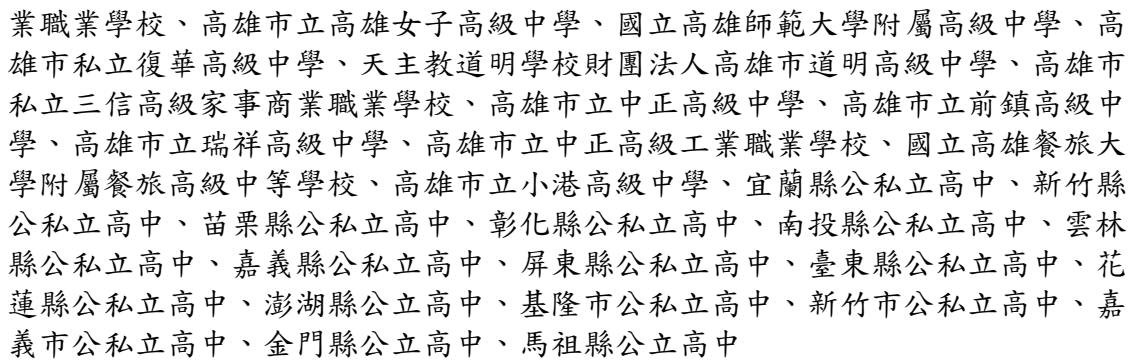 業職業學校、高雄市立高雄女子高級中學、國立高雄師範大學附屬高級中學、高
雄市私立復華高級中學、天主教道明學校財團法人高雄市道明高級中學、高雄市
私立三信高級家事商業職業學校、高雄市立中正高級中學、高雄市立前鎮高級中
學、高雄市立瑞祥高級中學、高雄市立中正高級工業職業學校、國立高雄餐旅大
學附屬餐旅高級中等學校、高雄市立小港高級中學、宜蘭縣公私立高中、新竹縣
公私立高中、苗栗縣公私立高中、彰化縣公私立高中、南投縣公私立高中、雲林
縣公私立高中、嘉義縣公私立高中、屏東縣公私立高中、臺東縣公私立高中、花
蓮縣公私立高中、澎湖縣公立高中、基隆市公私立高中、新竹市公私立高中、嘉
義市公私立高中、金門縣公立高中、馬祖縣公立高中